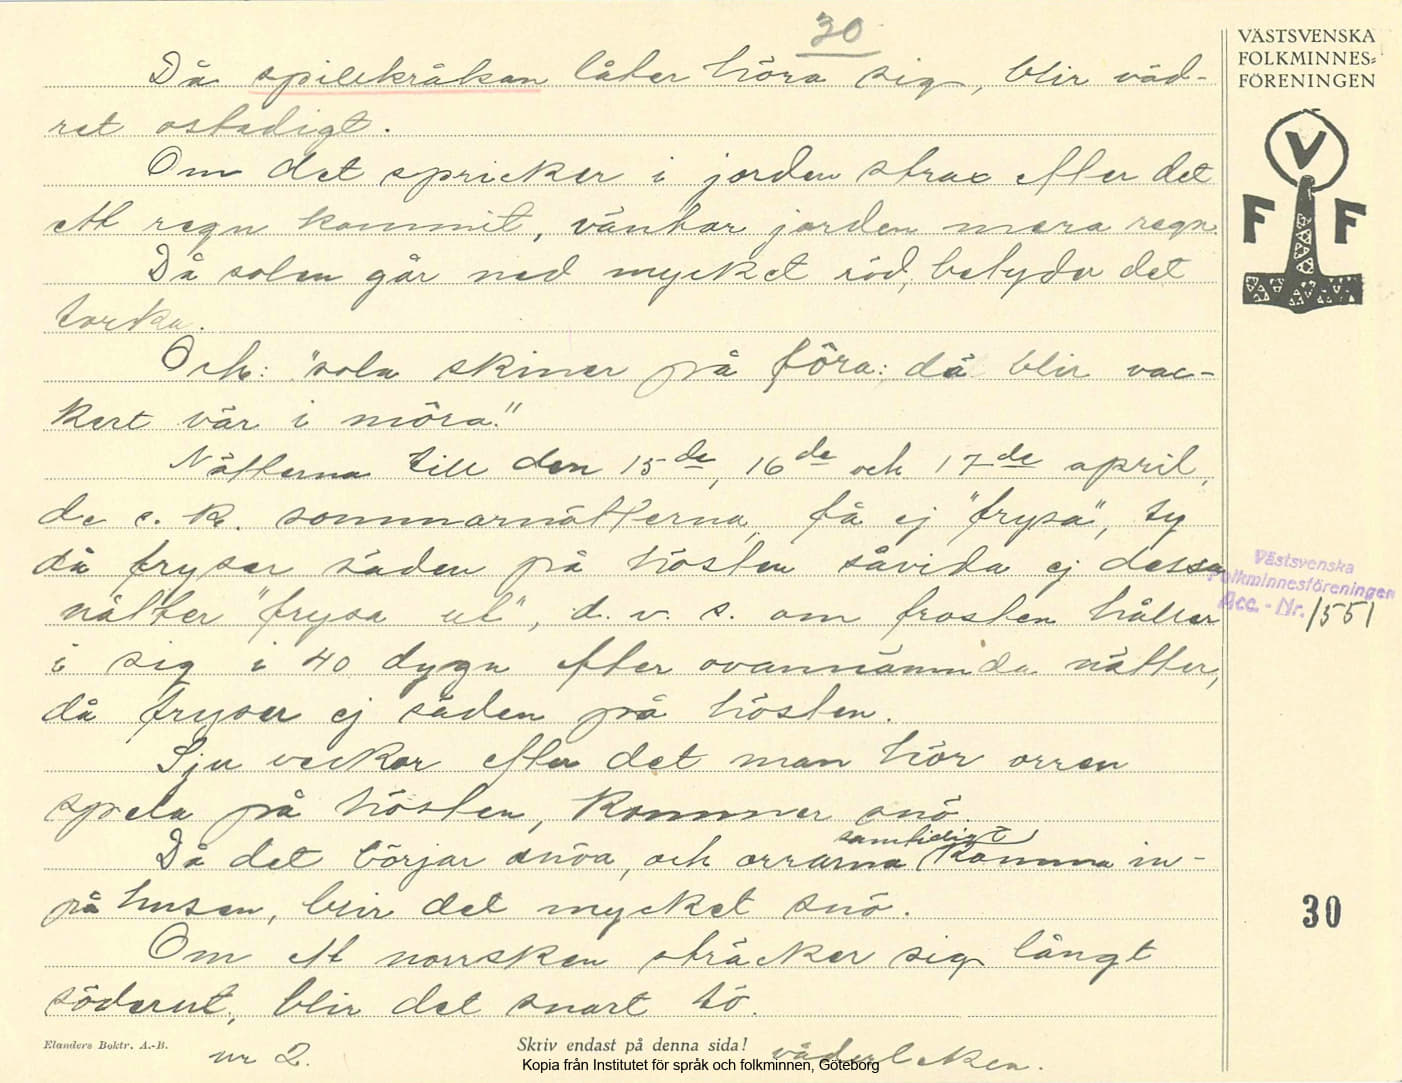 30
Då spillkråkan låter höra sig, blir väd-
ret ostadigt.
Om det spricker i jorden strax efter det
ett regn kommit, väntar jorden mera regn.
Då solen går ned mycket röd, betyder det
torka.
Och: "sola skiner på föra: då blir vac-
kert vär i möra."
Nätterna till den 15de, 16de och 17de april,
de s. k. sommarnätterna, få ej "frysa", ty
då fryser säden på hösten såvida ej dessa
nätter "frysa ut", d. v. s. om frosten håller
i sig i 40 dygn efter ovannämnda nätter,
då fryser ej säden på hösten.
Sju veckor efter det man hör orren
spela på hösten, kommer snö.
Då det börjar snöa, och orrarna samtidigt komma in-
på husen, blir det mycket snö.
Om ett norrsken sträcker sig långt
söderut, blir det snart tö.
Elanders Boktr. A.-B.
nr 2.
Skriv endast på denna sida!
vädertecken.
Kopia från Institutet för språk och folkminnen, Göteborg
VÄSTSVENSKA
FOLKMINNES-
FÖRENINGEN
V
F F
Västsvenska
Folkminnesföreningen
Acc. - Nr. 1551
30